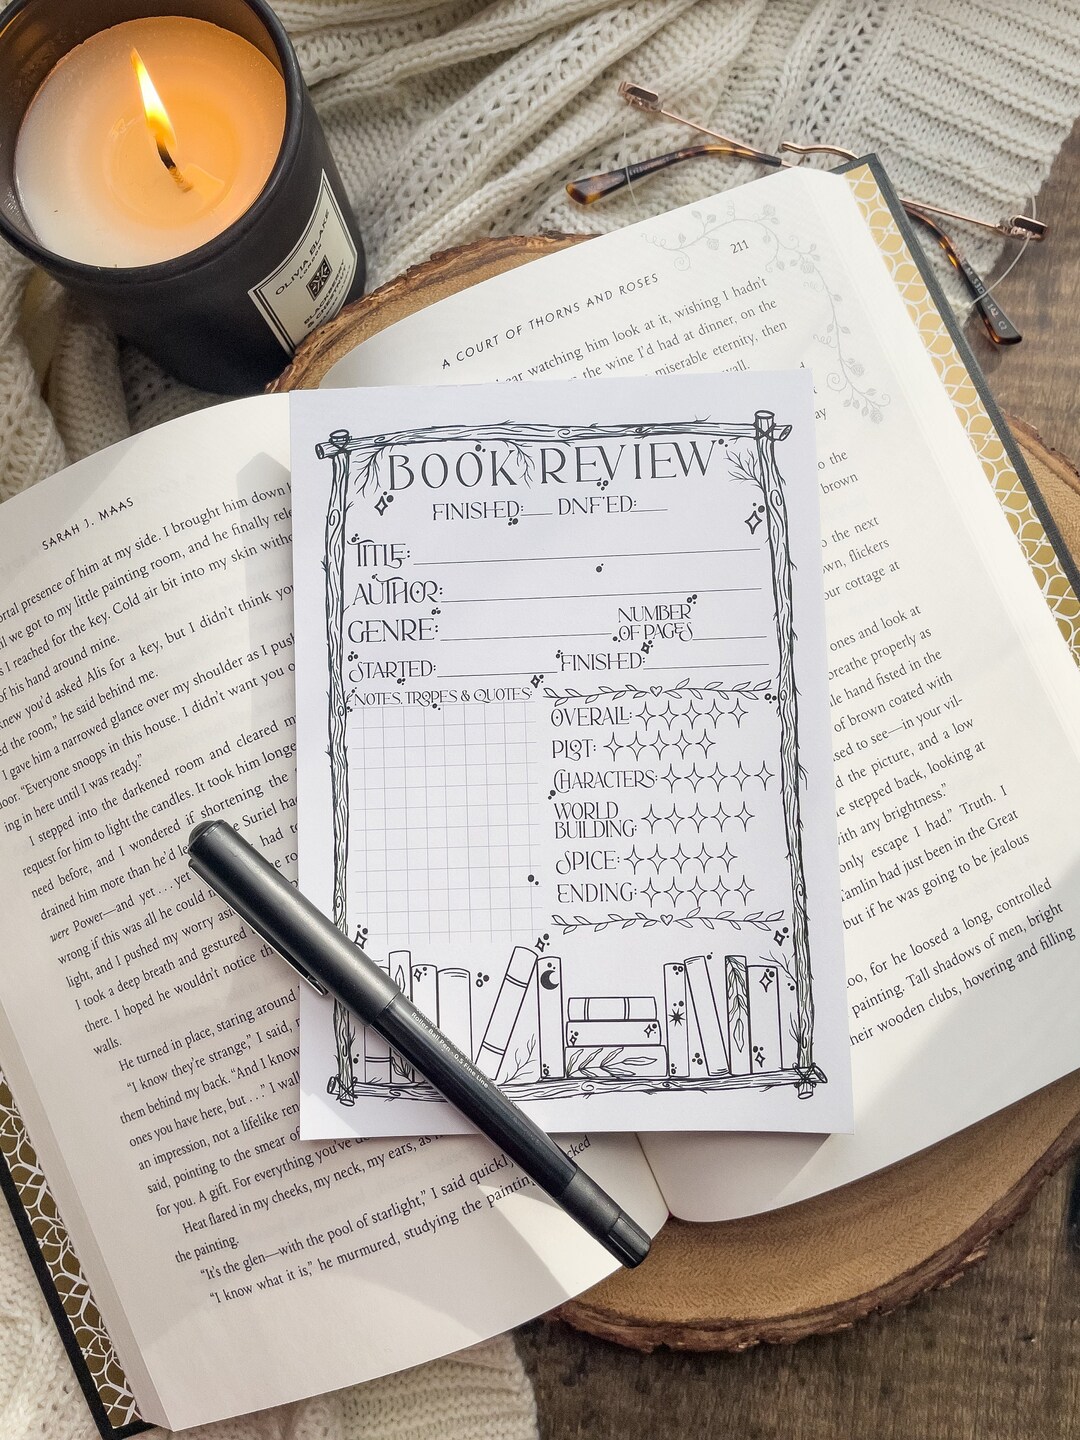 OLIVIA BLAKE
211
A COURT OF THORNS AND ROSES
watching him look at it, wishing I hadn't
the wine I'd had at dinner, on the
miserable eternity, then
wall.
to the
brown
o the next
own, flickers
our cottage at
ones and look at
breathe properly as
le hand fisted in the
of brown coated with
sed to see—in your vil-
d the picture, and a low
e stepped back, looking at
with any brightness."
only escape I had." Truth. I
Tamlin had just been in the Great
but if he was going to be jealous
oo, for he loosed a long, controlled
painting. Tall shadows of men, bright
heir wooden clubs, hovering and filling
SARAH J. MAAS
ortal presence of him at my side. I brought him down
il we got to my little painting room, and he finally rele
s I reached for the key. Cold air bit into my skin witho
of his hand around mine.
knew you'd asked Alis for a key, but I didn't think you
ed the room," he said behind me.
I gave him a narrowed glance over my shoulder as I push
oor. "Everyone snoops in this house. I didn't want you o
ing in here until I was ready."
I stepped into the darkened room and cleared m
request for him to light the candles. It took him longe
need before, and I wondered if shortening the
drained him more than he'd le
the Suriel had
were Power—and yet . . . yet
had to
wrong if this was all he could
light, and I pushed my worry asi
I took a deep breath and gestured
there. I hoped he wouldn't notice th
walls.
He turned in place, staring around
"I know they're strange," I said,
them behind my back. "And I know
ones you have here, but . . ." I wal
an impression, not a lifelike ren
said, pointing to the smear of
for you. A gift. For everything you've
Heat flared in my cheeks, my neck, my ears, as
the painting.
"It's the glen—with the pool of starlight," I said quickl
"I know what it is," he murmured, studying the painting
BOOK REVIEW
FINISHED: DNF'ED:
TITLE:
AUTHOR:
GENRE: NUMBER OF PAGES
STARTED: FINISHED:
NOTES, TROPES & QUOTES:
OVERALL:
PLOT:
CHARACTERS:
WORLD
BUILDING:
SPICE:
ENDING:
Roller Ball Pen · 0.5 Fine Line